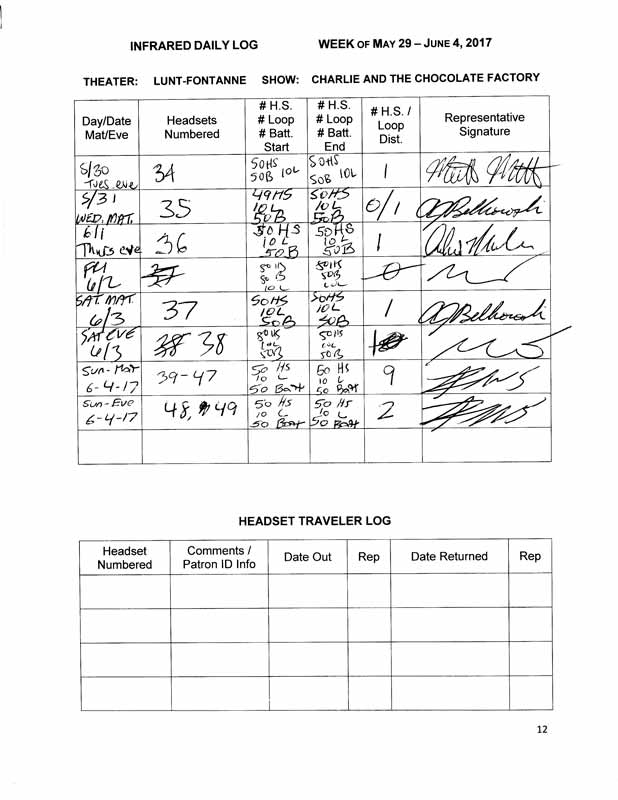 INFRARED DAILY LOG WEEK OF MAY 29 – JUNE 4, 2017
THEATER: LUNT-FONTANNE SHOW: CHARLIE AND THE CHOCOLATE FACTORY
Day/Date Mat/Eve Headsets Numbered # H.S. # Loop # Batt. Start # H.S. # Loop # Batt. End # H.S. / Loop Dist. Representative Signature
5/30 Tues eve 34 50HS 50B 10L 50HS 50B 10L 1
5/31 WED. MAT. 35 49HS 10L 50B 50HS 10L 50B 0/1
6/1 Thurs eve 36 50HS 10L 50B 50HS 10L 50B 1
FRI 6/2 50HS 50B 10L 50HS 50B 10L 0
SAT. MAT. 6/3 37 50HS 10L 50B 50HS 10L 50B 1
SAT EVE 6/3 38 50HS 10L 50B 50HS 10L 50B 1
Sun - Mat 6-4-17 39-47 50 HS 10 L 50 Batt 50 HS 10 L 50 Batt 9
Sun - Eve 6-4-17 48, 49 50 HS 10 L 50 Batt 50 HS 10 L 50 Batt 2
HEADSET TRAVELER LOG
Headset Numbered Comments / Patron ID Info Date Out Rep Date Returned Rep
12